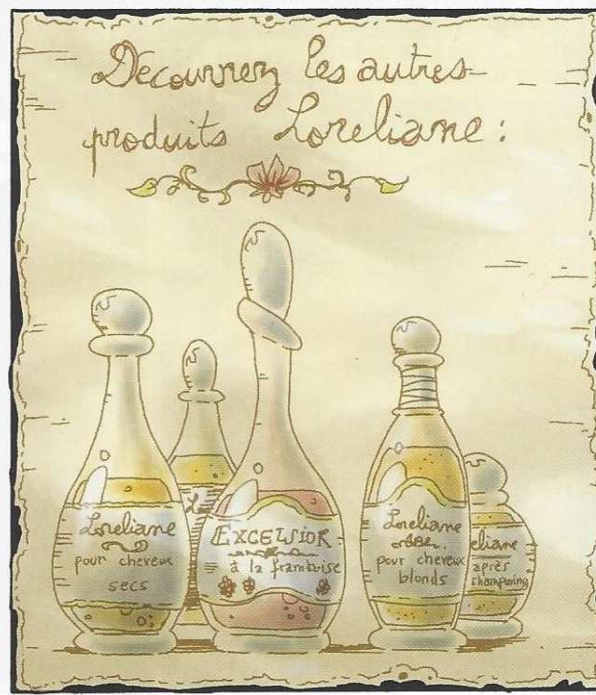 Découvrez les autres
produits Loreliane :
Loreliane
pour cheveux
secs
L
EXCELSIOR
à la framboise
Loreliane
pour cheveux
blonds
eliane
après
shampoing